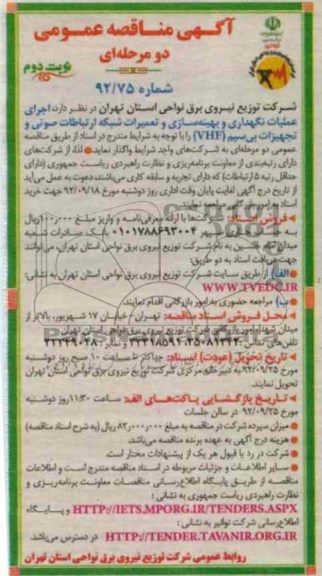 آگهی مناقصه عمومی
دو مرحله‌ای
نوبت دوم
شماره ۹۲/۷۵
شرکت توزیع نیروی برق نواحی استان تهران در نظر دارد اجرای
عملیات نگهداری و بهینه‌سازی و تعمیرات شبکه ارتباطات صوتی و
تجهیزات بی‌سیم (VHF) را با توجه به شرایط مندرج در اسناد از طریق مناقصه
عمومی دو مرحله‌ای به شرکت‌های واجد شرایط واگذار نماید. لذا، از شرکت‌های
دارای رتبه‌بندی از معاونت برنامه‌ریزی و نظارت راهبردی ریاست جمهوری (دارای
حداقل رتبه ۵ ارتباطات) که دارای تجربه و سابقه کاری می‌باشند، دعوت به عمل می‌آید
از تاریخ درج آگهی لغایت پایان وقت اداری روز دوشنبه مورخ ۹۲/۰۹/۱۸ جهت خرید
اسناد به نمایند.
فروش اسناد: شرکت‌ها با ارائه معرفی‌نامه و واریز مبلغ ۱۰۰٫۰۰۰ریال
به ۰۱۰۱۷۸۸۶۹۳۰۰۴ بانک صادرات شعبه
میدان به نام شرکت توزیع نیروی برق نواحی استان تهران، می‌توانند
جهت دریافت اسناد به دو طریق:
الف) از طریق سایت شرکت توزیع نیروی برق نواحی استان تهران به نشانی:
WWW.TVEDC.IR
ب) مراجعه حضوری به امور بازرگانی اقدام نمایند.
محل فروش اسناد مناقصه: تهران، خیابان ۱۷ شهریور، بالاتر از
میدان شهدا، امور بازرگانی شرکت توزیع نیروی برق نواحی استان تهران
تلفن‌های تماس:
تاریخ تحویل (عودت) اسناد: حداکثر تا ساعت ۱۰ صبح روز دوشنبه
مورخ ۹۲/۰۹/۲۵ به دبیرخانه مرکزی شرکت توزیع نیروی برق نواحی استان تهران
تحویل نمایند.
تاریخ بازگشایی پاکت‌های الف: ساعت ۱۱:۳۰ روز دوشنبه
مورخ ۹۲/۰۹/۲۵ در سالن جلسات
میزان سپرده شرکت در مناقصه به مبلغ ۸۲٫۰۰۰٫۰۰۰ ریال (به شرح اسناد مناقصه)
هزینه درج آگهی به عهده برنده مناقصه می‌باشد.
شرکت در رد یا قبول هر یک از پیشنهادات مختار است.
سایر اطلاعات و جزئیات مربوطه در اسناد مناقصه مندرج است و اطلاعات
مناقصه از طریق پایگاه اطلاع‌رسانی مناقصات معاونت برنامه‌ریزی و
نظارت راهبردی ریاست جمهوری به نشانی:
HTTP://IETS.MPORG.IR/TENDERS.ASPX و پایگاه
اطلاع‌رسانی شرکت توانیر به نشانی:
HTTP://TENDER.TAVANIR.ORG.IR در دسترس می‌باشد.
روابط عمومی شرکت توزیع نیروی برق نواحی استان تهران